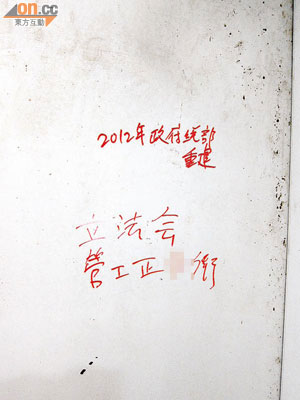 on.cc
東方互動
2012年政府统部
重建
立法会
管工正 衔